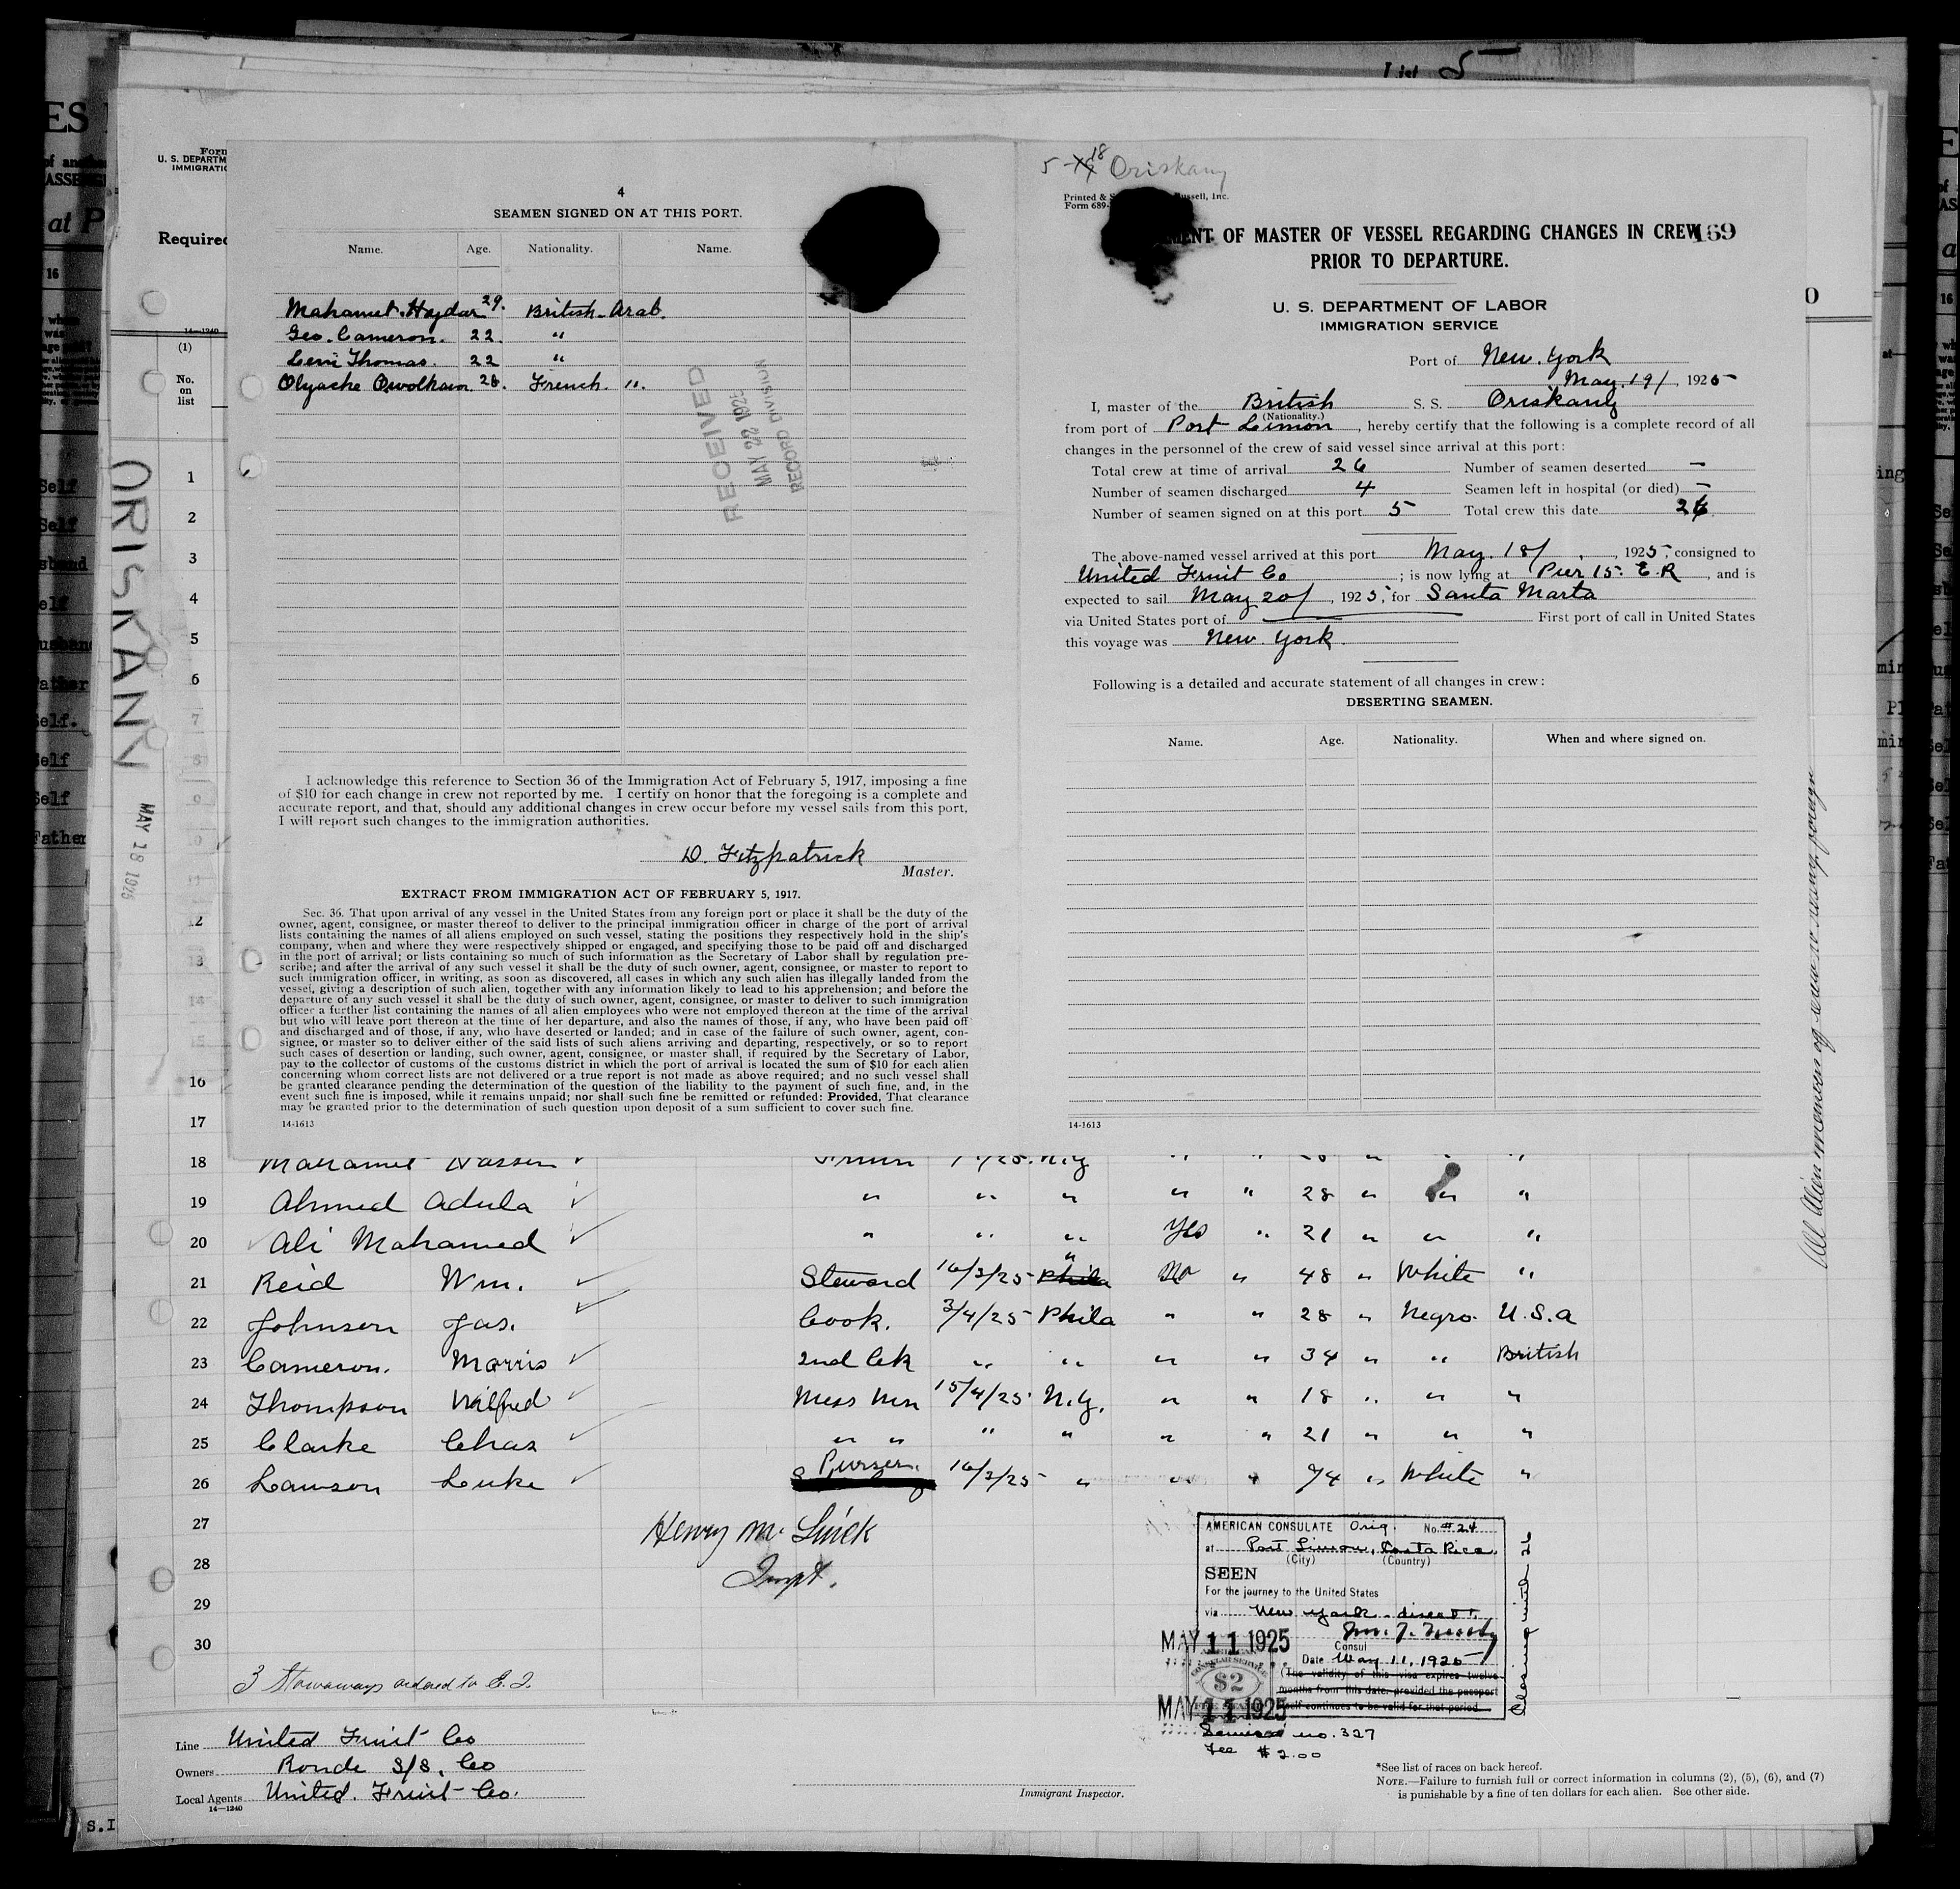 List 5
Form
U. S. DEPARTM
IMMIGRATIO
Required
14-1240
(1)
No.
on
list
ORISKANY
MAY 18 1925
4
SEAMEN SIGNED ON AT THIS PORT.
Name. Age. Nationality. Name.
Mahamet. Hajdar 29. British-Arab.
Geo. Cameron. 22. "
Levi Thomas. 22 "
28. French. ".
RECEIVED
MAY 22 1925
RECORD DIVISION
I acknowledge this reference to Section 36 of the Immigration Act of February 5, 1917, imposing a fine
of $10 for each change in crew not reported by me. I certify on honor that the foregoing is a complete and
accurate report, and that, should any additional changes in crew occur before my vessel sails from this port,
I will report such changes to the immigration authorities.
D. Fitzpatrick
Master.
EXTRACT FROM IMMIGRATION ACT OF FEBRUARY 5, 1917.
Sec. 36. That upon arrival of any vessel in the United States from any foreign port or place it shall be the duty of the
owner, agent, consignee, or master thereof to deliver to the principal immigration officer in charge of the port of arrival
lists containing the names of all aliens employed on such vessel, stating the positions they respectively hold in the ship's
company, when and where they were respectively shipped or engaged, and specifying those to be paid off and discharged
in the port of arrival; or lists containing so much of such information as the Secretary of Labor shall by regulation pre-
scribe; and after the arrival of any such vessel it shall be the duty of such owner, agent, consignee, or master to report to
such immigration officer, in writing, as soon as discovered, all cases in which any such alien has illegally landed from the
vessel, giving a description of such alien, together with any information likely to lead to his apprehension; and before the
departure of any such vessel it shall be the duty of such owner, agent, consignee, or master to deliver to such immigration
officer a further list containing the names of all alien employees who were not employed thereon at the time of the arrival
but who will leave port thereon at the time of her departure, and also the names of those, if any, who have been paid off
and discharged and of those, if any, who have deserted or landed; and in case of the failure of such owner, agent, con-
signee, or master so to deliver either of the said lists of such aliens arriving and departing, respectively, or so to report
such cases of desertion or landing, such owner, agent, consignee, or master shall, if required by the Secretary of Labor,
pay to the collector of customs of the customs district in which the port of arrival is located the sum of $10 for each alien
concerning whom correct lists are not delivered or a true report is not made as above required; and no such vessel shall
be granted clearance pending the determination of the question of the liability to the payment of such fine, and, in the
event such fine is imposed, while it remains unpaid; nor shall such fine be remitted or refunded: Provided, That clearance
may be granted prior to the determination of such question upon deposit of a sum sufficient to cover such fine.
14-1613
5-18 Oriskany
Printed & S ussell, Inc.
Form 689-
MENT OF MASTER OF VESSEL REGARDING CHANGES IN CREW 169
PRIOR TO DEPARTURE.
U. S. DEPARTMENT OF LABOR
IMMIGRATION SERVICE
Port of New. York
May. 19/, 1925
I, master of the British S. S. Oriskany
(Nationality.)
from port of Port Limon, hereby certify that the following is a complete record of all
changes in the personnel of the crew of said vessel since arrival at this port:
Total crew at time of arrival 26 Number of seamen deserted —
Number of seamen discharged 4 Seamen left in hospital (or died) —
Number of seamen signed on at this port 5 Total crew this date
The above-named vessel arrived at this port May. 18/, 1925, consigned to
United Fruit Co; is now lying at Pier 15. E.R, and is
expected to sail May 20/, 1925, for Santa Marta
via United States port of First port of call in United States
this voyage was New York.
Following is a detailed and accurate statement of all changes in crew:
DESERTING SEAMEN.
Name. Age. Nationality. When and where signed on.
14-1613
1
2
3
4
5
6
7
8
9
10
11
12
13
14
15
16
17
18 Mahamet Hassen
19 Ahmed Adula " " " " " 28 " " "
20 Ali Mahamed " " " Yes " 21 " " "
21 Reid Wm. Steward 16/3/25 Phila " No " 48 " White "
22 Johnson Jas. Cook. 3/4/25 Phila " " 28 " Negro. U.S.A
23 Cameron. Morris 2nd Ck " " " " 34 " " British
24 Thompson Wilfred Mess Mn 15/4/25 N.Y. " " 18 " " "
25 Clarke Chas " " " " " " 21 " " "
26 Lawson Luke Purser. 16/3/25 " " " 74 " White "
27
28
29
30
Henry M.
Inspt.
3 Stowaways ordered to E. I.
AMERICAN CONSULATE Orig. No. #24
at Port Limon, Costa Rica.
(City) (Country)
SEEN
For the journey to the United States
via New York - direct.
Consul
Date May 11, 1925
(The validity of this visa expires twelve
months from this date, provided the passport
itself continues to be valid for that period.
MAY 11 1925
$2
MAY 11 1925
Service no. 327
Fee $2.00
Closing with 26
All Alien members of crew
Line United Fruit Co
Owners Ronde S/S. Co
Local Agents United. Fruit Co.
14-1240
Immigrant Inspector.
*See list of races on back hereof.
NOTE.—Failure to furnish full or correct information in columns (2), (5), (6), and (7)
is punishable by a fine of ten dollars for each alien. See other side.